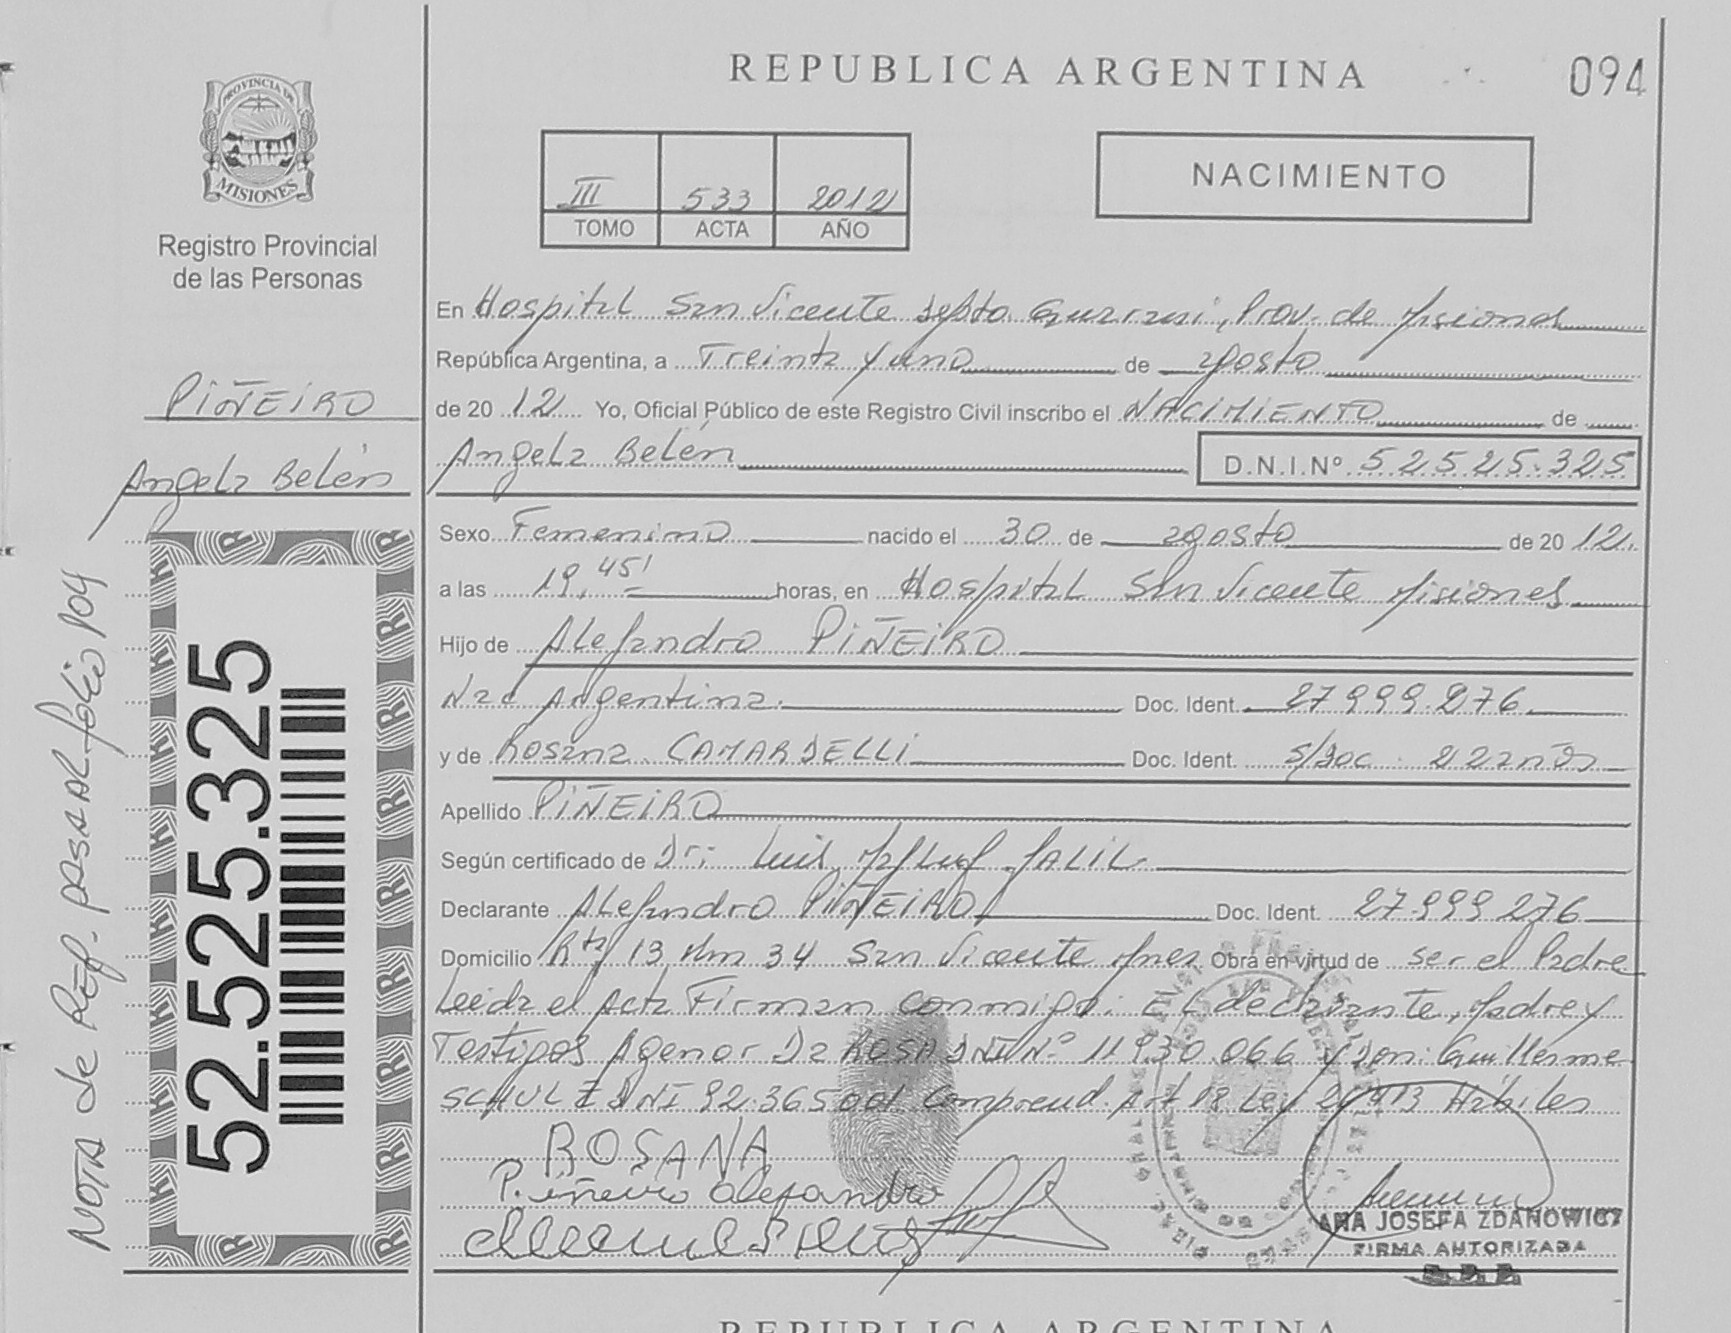 REPUBLICA ARGENTINA
094
PROVINCIA DE
MISIONES
Registro Provincial
de las Personas
III 533 2012
TOMO ACTA AÑO
NACIMIENTO
PIÑEIRO
Angela Belén
NOTA de REF. PASA AL folio 104
52.525.325
En Hospital San Vicente depto Guarani, Prov. de Misiones
República Argentina, a Treinta y uno de agosto
de 20 12 Yo, Oficial Público de este Registro Civil inscribo el NACIMIENTO de
Angela Belén D.N.I.Nº 52525.325
Sexo Femenino nacido el 30 de agosto de 20 12.
a las 19,45' horas, en Hospital San Vicente Misiones
Hijo de Alejandro PIÑEIRO
Nac Argentina. Doc. Ident. 27999.276
y de Rosana CAMARDELLI Doc. Ident. s/doc. 22 años
Apellido PIÑEIRO
Según certificado de Dr: Luis JALIL
Declarante Alejandro PIÑEIRO Doc. Ident. 27999276
Domicilio Rta 13 Km 34 San Vicente Mnes Obra en virtud de ser el Padre
Leida el Acta Firman conmigo: El declarante, Madre y
Testigos Agenor Da ROSA DNI Nº 11930.066 y don: Guillermo
SCHULZ DNI 92.365 Comprend. Art 18 Ley Hábiles
ROSANA
Piñeiro alejandro
ANA JOSEFA ZDANOWICZ
FIRMA AUTORIZADA
REPUBLICA ARGENTINA